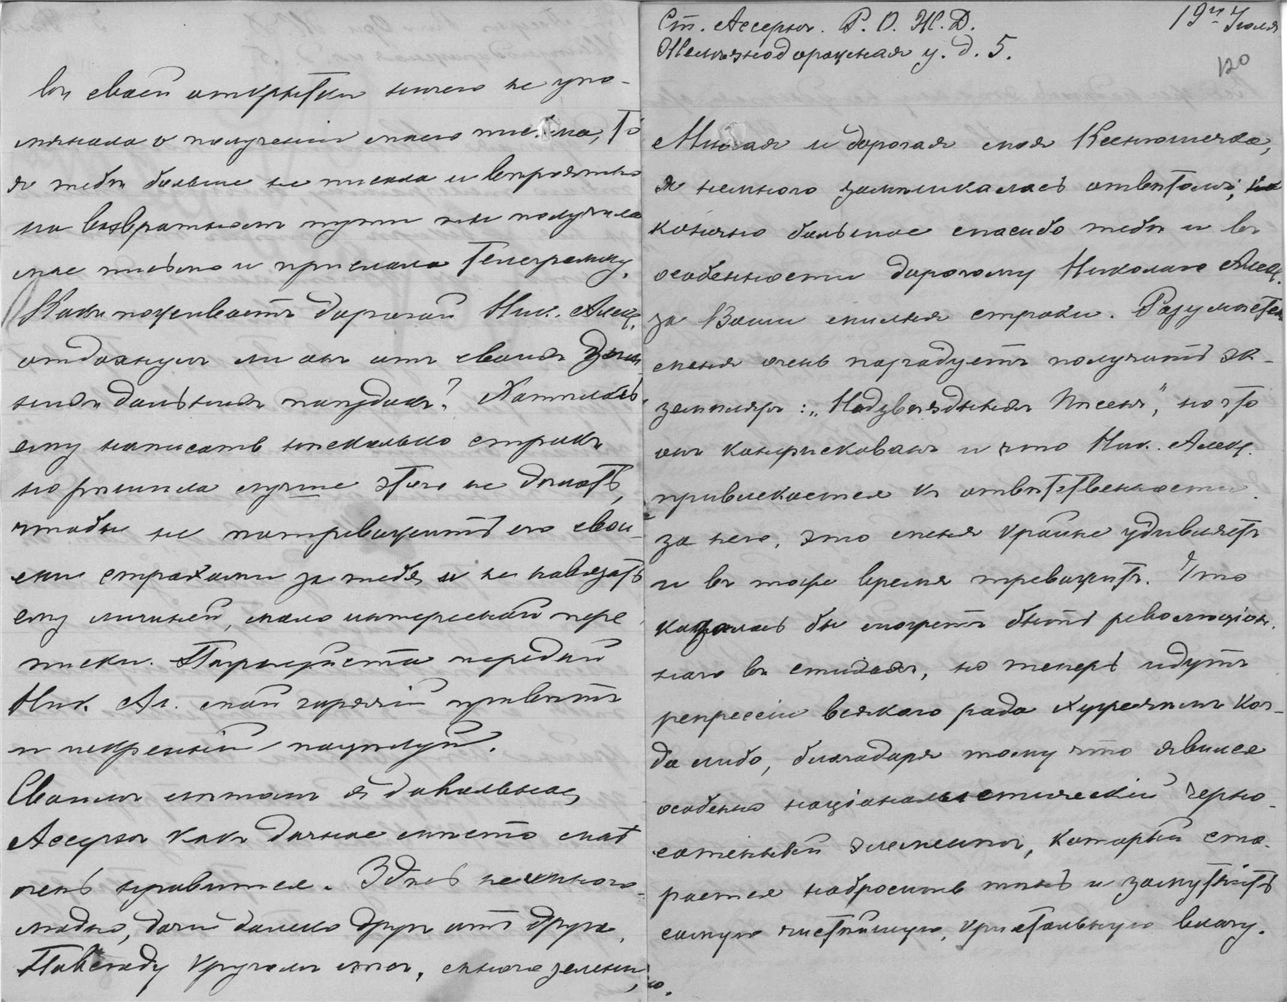 въ своей открыткѣ ничего не упо-
мянала о полученіи моего письма, то
я тебѣ больше не писала и вѣроятно
на возвратномъ пути ты получила
мое письмо и прислала телеграмму.
Какъ поживаетъ дорогой Ник. Алек.
отдохнулъ ли онъ отъ своихъ
дальнихъ поѣздокъ? Хотѣлось
ему написать нѣсколько строкъ
но рѣшила лучше этого не дѣлать,
чтобы не потревожить его свои-
ми страхами за тебя и не навязать
ему личной, мало интересной пере
писки. Пожалуйста передай
Ник. Ал. мой горячій привѣтъ
и искренній поцѣлуй.
Своимъ лѣтомъ я довольна,
Ассернъ какъ дачное мѣсто мнѣ
очень нравится. Здѣсь не много-
людно, дачи далеко другъ отъ друга,
Повсюду кругомъ лѣсъ, много зелени,
Ст. Ассернъ. Р. О. Ж. Д.
Желѣзнодорожная у. д. 5.
19го Іюля
120
Милая и дорогая моя Ксенюшечка,
я немного замѣшкалась отвѣтомъ,
конечно большое спасибо тебѣ и въ
особенности дорогому Николаю Алек.
за Ваши милыя строки. Разумѣется
меня очень порадуетъ получить эк-
земпляръ: „Надзвѣздныя Пѣсни", но что
онъ конфискованъ и что Ник. Алекс.
привлекается къ отвѣтственности
за него, это меня крайне удивляетъ
и въ тоже время тревожитъ. Что
казалось бы можетъ быть революціон.
наго въ стихахъ, но теперь идутъ
репрессіи всякаго рода хуже чѣмъ ког-
да либо, благодаря тому что явился
особенно націоналистическій черно-
сотенный элементъ, который ста-
рается набросить тѣнь и замутить
самую чистѣйшую, кристальную влагу.